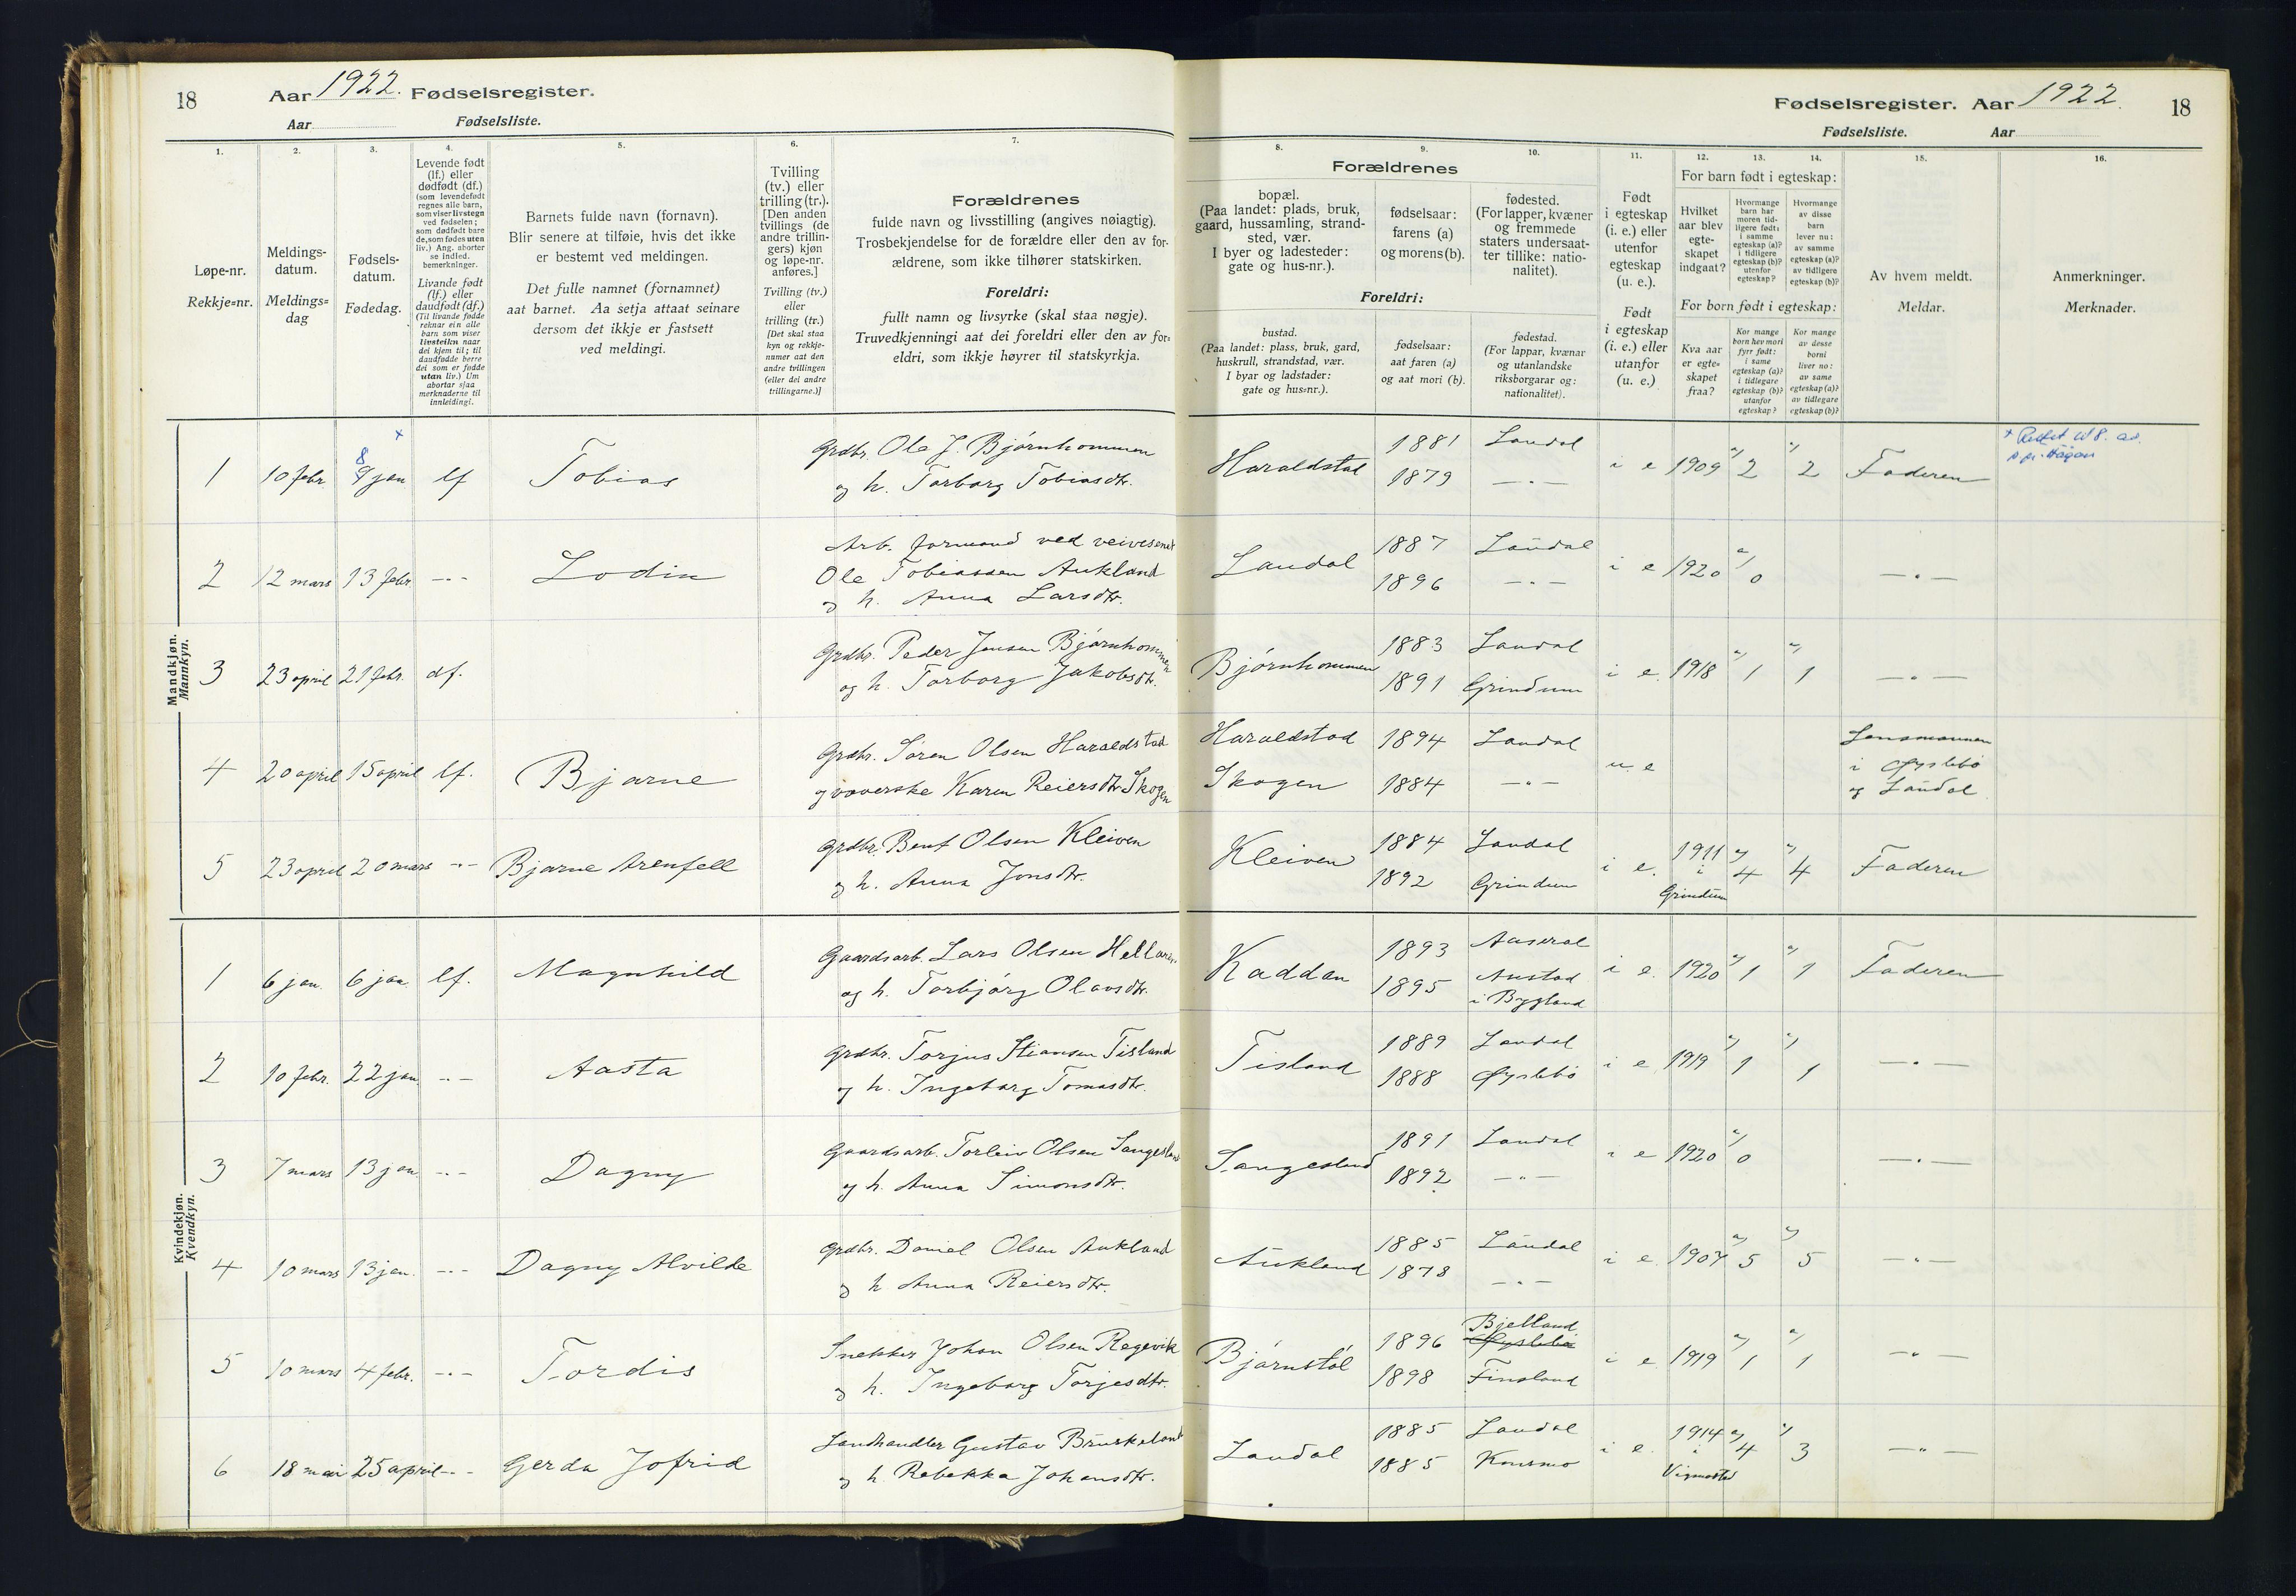 18 Aar 1922. Fødselsregister.
Aar Fødselsliste.
1. 2. 3. 4. 5. 6. 7.
Løpe-nr.
Rekkje=nr.
Meldings-
datum.
Meldings=
dag
Fødsels-
datum.
Fødedag.
Levende født
(lf.) eller
dødfødt (df.)
(som levendefødt
regnes alle barn,
som viser livstegn
ved fødselen;
som dødfødt bare
de, som fødes uten
liv.) Ang. aborter
se indled.
bemerkninger.
Livande født
(lf.) eller
daudfødt (df.)
(Til livande fødde
reknar ein alle
barn som viser
livsteikn naar
dei kjem til; til
daudfødde berre
dei som er fødde
utan liv.) Um
abortar sjaa
merknaderne til
innleidingi.
Barnets fulde navn (fornavn).
Blir senere at tilføie, hvis det ikke
er bestemt ved meldingen.
Det fulle namnet (fornamnet)
aat barnet. Aa setja attaat seinare
dersom det ikkje er fastsett
ved meldingi.
Tvilling
(tv.) eller
trilling (tr.).
[Den anden
tvillings (de
andre trillin-
gers) kjøn
og løpe-nr.
anføres.]
Tvilling (tv.)
eller
trilling (tr.)
[Det skal staa
kyn og rekkje-
numer aat den
andre tvillingen
(eller dei andre
trillingarne.)]
Forældrenes
fulde navn og livsstilling (angives nøiagtig).
Trosbekjendelse for de forældre eller den av for-
ældrene, som ikke tilhører statskirken.
Foreldri:
fullt namn og livsyrke (skal staa nøgje).
Truvedkjenningi aat dei foreldri eller den av for=
eldri, som ikkje høyrer til statskyrkja.
Mandkjøn.
Mannkyn.
1 10 febr. 8 9 jan x lf Tobias Grdbr. Ole J. Bjørnhommen
og h. Torborg Tobiasdtr.
2 12 mars 13 febr. -"- Lodin Arb. formand ved veivesenet
Ole Tobiassen Aukland
og h. Anna Larsdtr.
3 23 april 21 febr. df. Grdbr. Peder Jensen Bjørnhommen
og h. Torborg Jakobsdtr.
4 20 april 15 april lf. Bjarne Grdbr. Søren Olsen Haraldstad
og væverske Karen Reiersdtr. Skogen
5 23 april 20 mars -"- Bjarne Arenfell Grdbr. Bent Olsen Kleiven
og h. Anna Jonsdtr.
Kvindekjøn.
Kvendkyn.
1 6 jan. 6 jan. lf. Magnhild Gaardsarb. Lars Olsen
og h. Torbjørg Olavsdtr.
2 10 febr. 22 jan. -"- Aasta Grdbr. Torjus Stiansen Tisland
og h. Ingeborg Tomasdtr.
3 7 mars 13 jan -"- Dagny Gaardsarb. Torleiv Olsen Sangesland
og h. Anna Simonsdtr.
4 10 mars 13 jan. -"- Dagny Alvilde Grdbr. Daniel Olsen Aukland
og h. Anna Reiersdtr.
5 10 mars 4 febr. -"- Tordis Snekker Johan Olsen Regevik
og h. Ingeborg Torjesdtr.
6 18 mai 25 april -"- Gerda Jofrid Landhandler Gustav Bruskeland
og h. Rebekka Johansdtr.
Fødselsregister. Aar 1922. 18
Fødselsliste. Aar
8. 9. 10. 11. 12. 13. 14. 15. 16.
Forældrenes
bopæl.
(Paa landet: plads, bruk,
gaard, hussamling, strand-
sted, vær.
I byer og ladesteder:
gate og hus-nr.).
fødselsaar:
farens (a)
og morens (b).
fødested.
(For lapper, kvæner
og fremmede
staters undersaat-
ter tillike: natio-
nalitet).
Foreldri:
bustad.
(Paa landet: plass, bruk, gard,
huskrull, strandstad, vær.
I byar og ladstader:
gate og hus=nr.).
fødselsaar:
aat faren (a)
og aat mori (b).
fødestad.
(For lappar, kvænar
og utanlandske
riksborgarar og:
nationalitet).
Født
i egteskap
(i. e.) eller
utenfor
egteskap
(u. e.).
Født
i egteskap
(i. e.) eller
utanfor
(u. e.)
For barn født i egteskap:
Hvilket
aar blev
egte-
skapet
indgaat?
Hvormange
barn har
moren tid-
ligere født:
i samme
egteskap (a)?
i tidligere
egteskap (b)?
utenfor
egteskap?
Hvormange
av disse
barn
lever nu:
av samme
egteskap (a)?
av tidligere
egteskap (b)?
For born født i egteskap:
Kva aar
er egte=
skapet
fraa?
Kor mange
born hev mori
fyrr født:
i same
egteskap (a)?
i tidlegare
egteskap (b)?
utanfor
egteskap?
Kor mange
av desse
borni
liver no:
av same
egteskap (a)?
av tidlegare
egteskap (b)?
Av hvem meldt.
Meldar.
Anmerkninger.
Merknader.
Haraldstad 1881 Laudal i e 1909 a) 2 a) 2 Faderen
1879 -"-
Laudal 1887 Laudal i e 1920 a) 0 -"-
1896 -"-
Bjørnhommen 1883 Laudal i e. 1918 a) 1 a) 1 -"-
1891 Grindum
Haraldstad 1894 Laudal u. e Lensmannen
i Øyslebø
og Laudal
Skogen 1884 -"-
Kleiven 1884 Laudal i e. 1911 i Grindum a) 4 a) 4 Faderen
1892 Grindum
Kaddan 1893 Aaseral i e. 1920 a) 1 a) 1 Faderen
1895 Austad
i Bygland
Tisland 1889 Laudal i e 1919 a) 1 a) 1 -"-
1888 Øyslebø
Sangesland 1891 Laudal i e 1920 a) 0 -"-
1892 -"-
Aukland 1885 Laudal i e. 1907 a) 5 a) 5 -"-
1878 -"-
Bjørnstøl 1896 Bjelland Øyslebø i e. 1919 a) 1 a) 1 -"-
1898 Finsland
Laudal 1885 Laudal i e. 1914 i Vigmostad a) 4 a) 3 -"-
1885 Konsmo